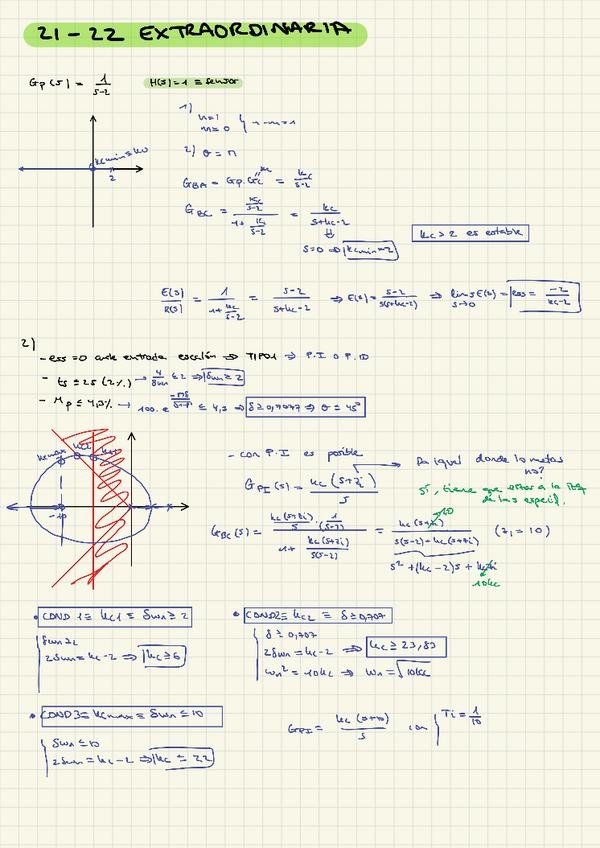 21-22 EXTRAORDINARIA
Gp(s) = 1/(s-2)
H(s)=1 ≡ sensor
1)
n=1
m=0 } n-m=1
Kcmin=k0
2
2) σ = π
GBA = Gp·Gc = kc/(s-2)
GBC = (kc/(s-2))/(1+kc/(s-2)) = kc/(s+kc-2)
⇓
s=0 ⇒ kcmin=2
kc>2 es estable
E(s)/R(s) = 1/(1+kc/(s-2)) = (s-2)/(s+kc-2) ⇒ E(s) = (s-2)/(s(s+kc-2)) ⇒ lim s→0 s·E(s) = ess = -2/(kc-2)
2)
- ess=0 ante entrada escalón ⇒ TIPO1 ⇒ P.I O P.ID
- ts ≤ 2s (2%) → 4/δωn ≤ 2 ⇒ δωn ≥ 2
- Mp ≤ 4,3% → 100·e ≤ 4,3 ⇒ δ ≥ 0,7077 ⇒ σ ≤ 45°
kcmax kc2 kc1
-10
- con P.I es posible
GPI(s) = kc(s+zi)/s
Da igual donde lo metas no?
sí, tiene que estar a la izq de las especif.
GBC(s) = (kc(s+zi)/s · 1/(s-2))/(1+kc(s+zi)/(s(s-2))) = kc(s+zi)/(s(s-2)+kc(s+zi)) (zi=10)
10
s²+(kc-2)s+kczi
10kc
• COND 1 ≡ kc1 ≡ δωn ≥ 2
δωn ≥ 2
2δωn = kc-2 ⇒ kc ≥ 6
• COND2 ≡ kc2 ≡ δ ≥ 0,707
δ ≥ 0,707
2δωn = kc-2 ⇒ kc ≥ 23,83
ωn² = 10kc ⇒ ωn = √10kc
• COND3 ≡ kcmax ≡ δωn ≤ 10
δωn ≤ 10
2δωn = kc-2 ⇒ kc ≤ 22
GPI = kc(s+10)/s con { Ti = 1/10